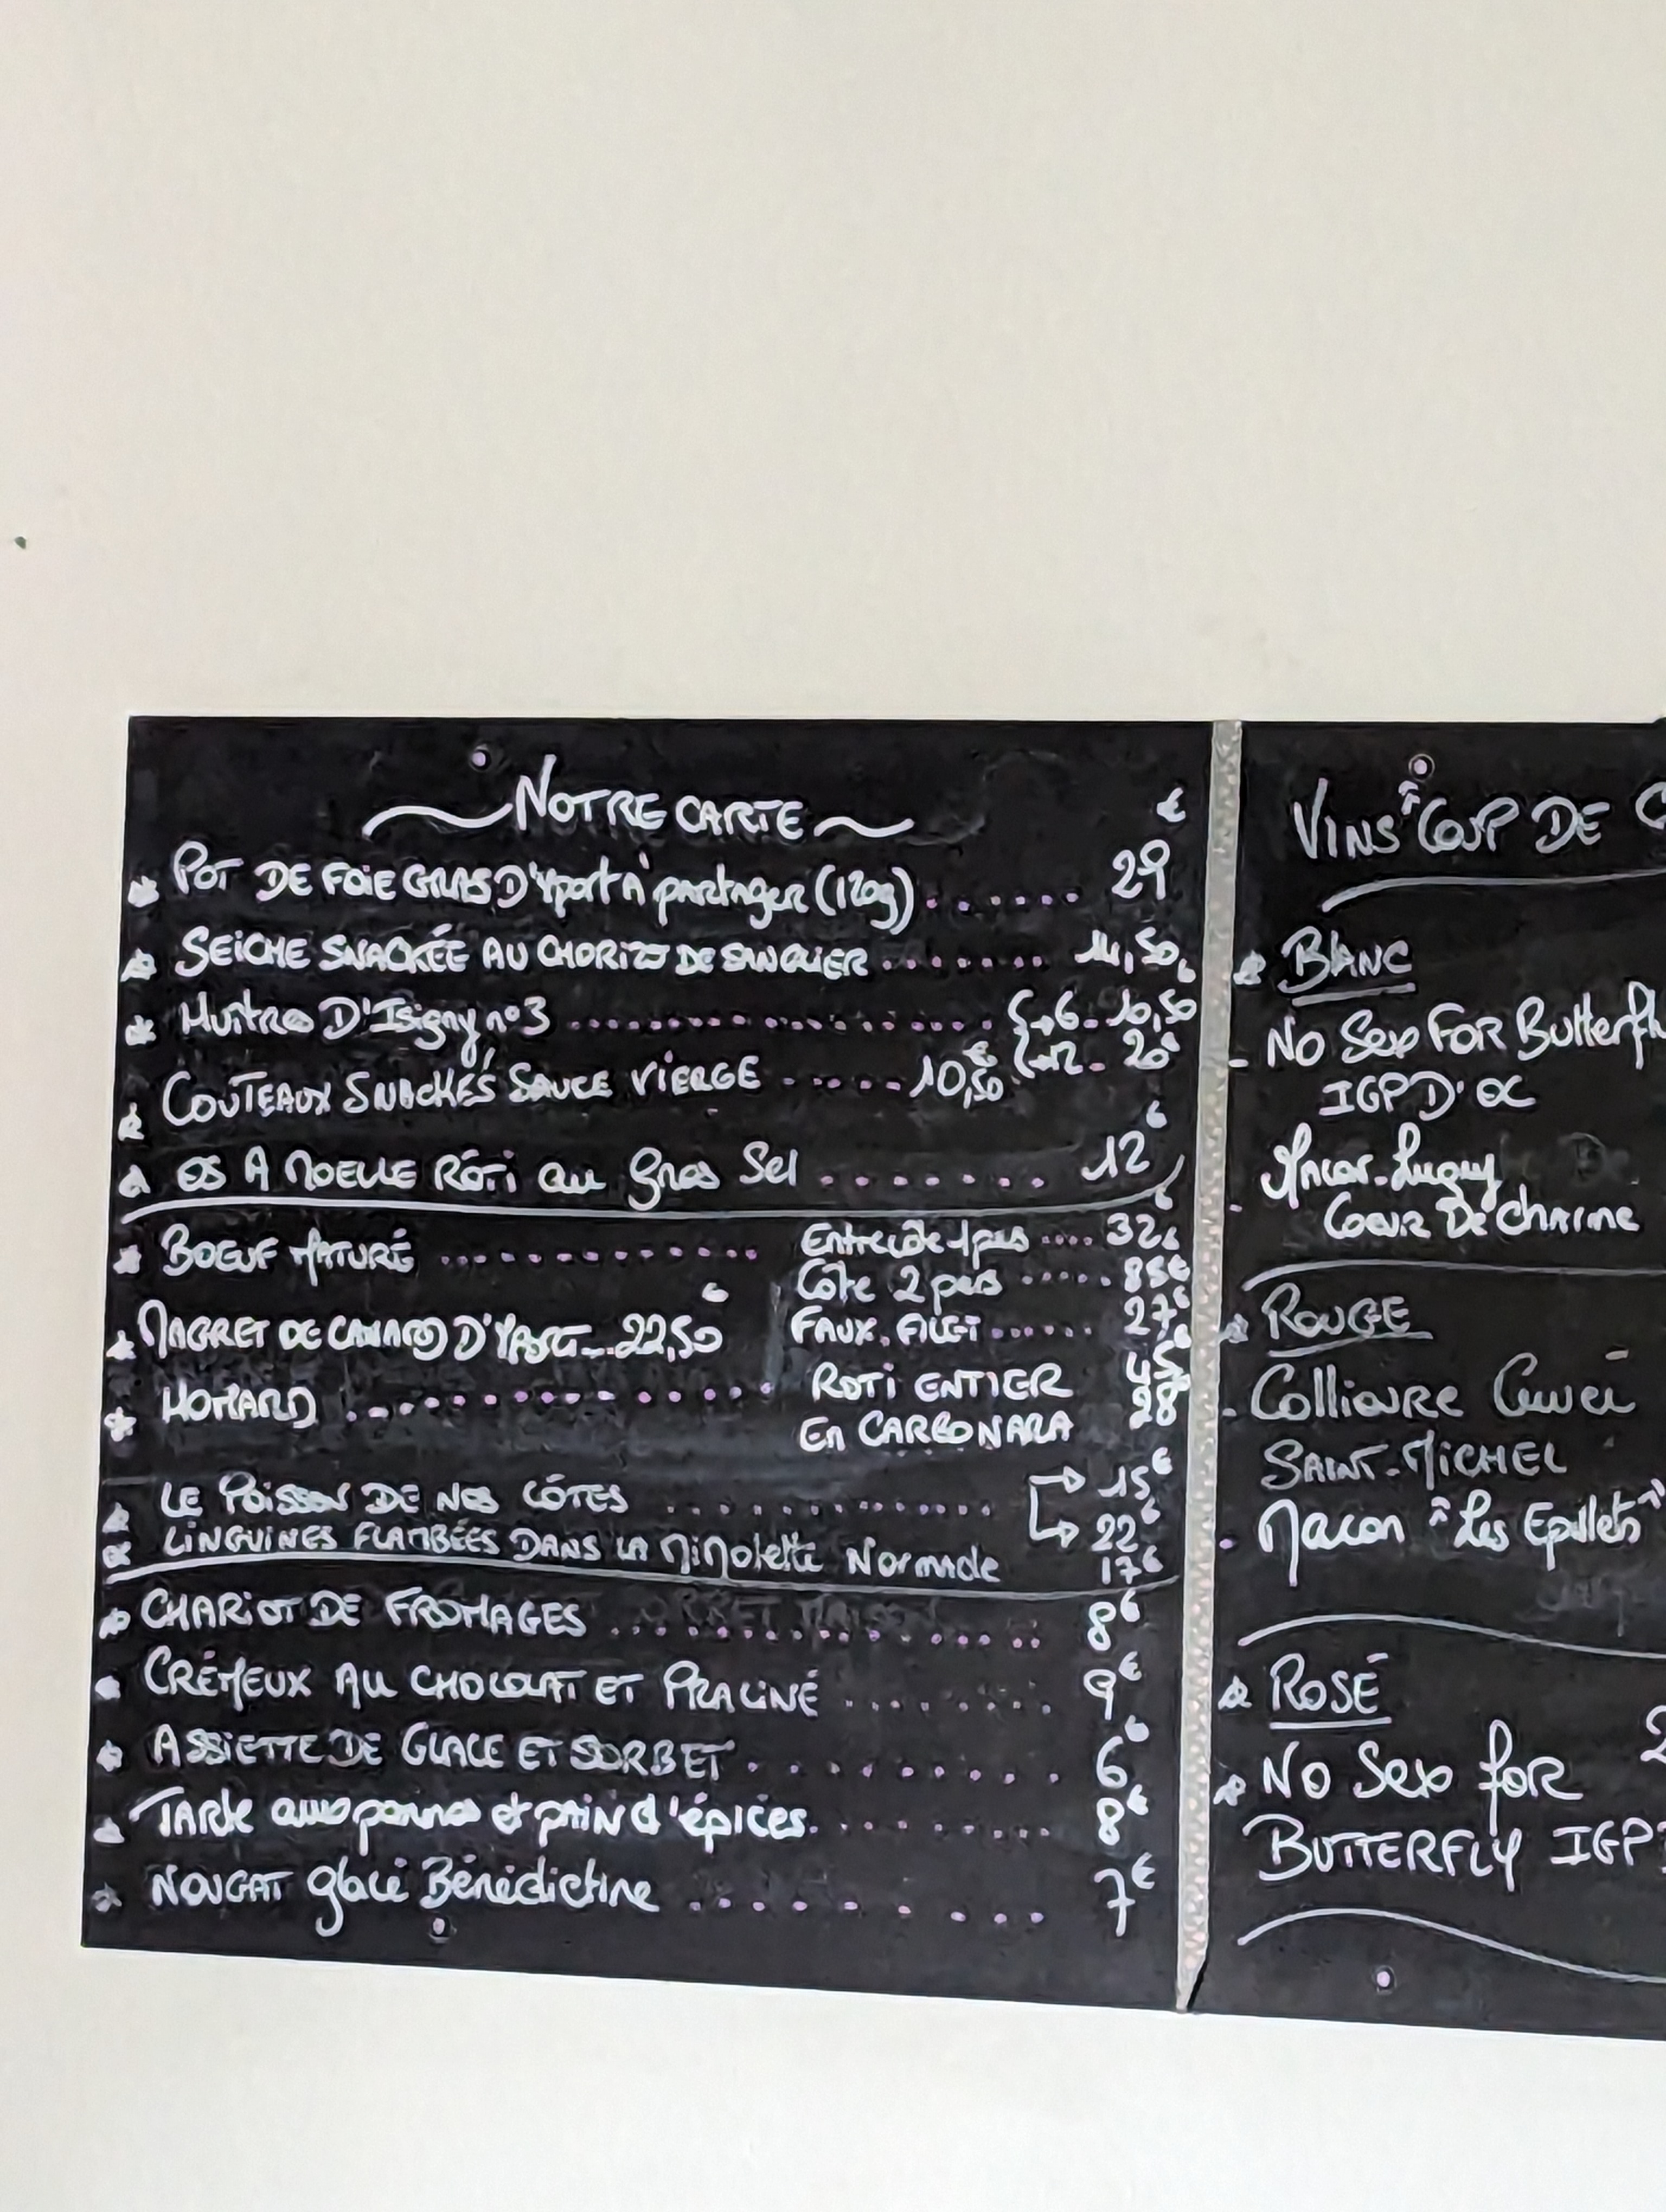 NOTRE CARTE €
POT DE FOIE GRAS D'Yport à partager (120g) ....... 29
SEICHE SNACKÉE AU CHORIZO DE SANGLIER ....... 14,50€
Huitres D'Isigny n°3 ................ → 6 - 10,50
→ 12 - 20€
COUTEAUX SNACKÉS SAUCE VIERGE ..... 10,50€
OS A MOELLE RÔTI au Gros Sel ....... 12€
BOEUF MATURÉ ............ Entrecôte 1 pers .... 32€
Côte 2 pers ..... 85€
MAGRET DE CANARD D'YPORT ... 22,50€ FAUX-FILET ...... 27€
HOMARD ............ ROTI ENTIER 45€
En CARBONARA 28€
LE POISSON DE NOS CÔTES ............. → 15€
→ 22€
LINGUINES FLAMBÉES DANS LA MiMolette Normande 17€
CHARIOT DE FROMAGES ............. 8€
CRÉMEUX AU CHOCOLAT ET PRALINÉ ........ 9€
ASSIETTE DE GLACE ET SORBET .......... 6€
TARTE aux pommes et pAIN d'épices .......... 8€
NOUGAT glacé Bénédictine ......... 7€
VINS "COUP DE
BLANC
- NO Sex FOR Butterfly
IGP D'OC
- Macon-Lugny
Coeur De Charme
ROUGE
- Collioure Cuvée
SAINT-MICHEL
- Macon "Les Epillets"
ROSÉ
NO Sex for
BUTTERFLY IGP